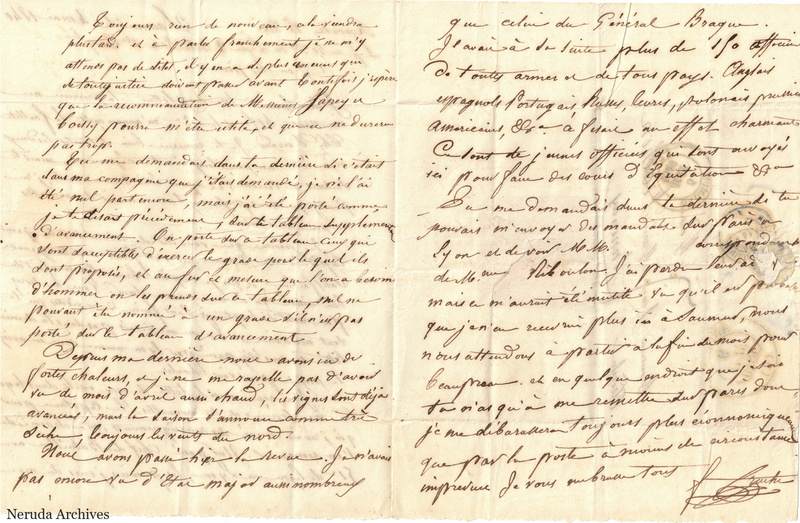 Toujours rien de nouveau, cela viendra
plustard. et à parler franchement je ne m'y
attends pas de sitot, il y en a de plus anciens que
de toute justice doivent passer avant toutefois j'espère
que la recommandation de Messieurs Lapey et
pourra m'être utile, et que ce ne durera
pas trop.
Tu me demandais dans ta dernière si c'etait
dans ma compagnie que j'étais demandé, je ne l'ai
été nul part encore, mais j'ai été porté comme
je te disais precedemment, sur le tableau supplementaire
d'avancement. On porte sur ce tableau ceux qui
sont susceptibles d'exercer le grade pour lequel ils
sont proposés, et au fur et mesure que l'on a besoin
d'hommes on les prend sur ce tableau, nul ne
pouvant être nommé à un grade s'il n'est pas
porté sur le tableau d'avancement
Depuis ma dernière nous avons eu de
fortes chaleurs, et je ne me rapelle pas d'avoir
vu de mois d'avril aussi chaud, les vignes sont déjà
avancées, mais la saison s'annonce comme très
sèche, toujours les vents du nord.
Nous avons passé hier la revue. Je n'avais
pas encore vu d'Etat major aussi nombreux
que celui du Général Brague.
Il avait à sa suite plus de 150 officiers
de toutes armes et de tous pays. Anglais
espagnols Portugais, Russes, polonais prussiens
Américains, &a &a fesait un effet charmant
Ce sont de jeunes officiers qui sont envoyés
ici pour faire des cours d'Equitation &a
Tu me demandais dans ta dernière si tu
pouvais m'envoyer des mandats sur Paris ou
Lyon et de voir M.M. correspondants
de Mme Riboulon J'ai perdu
mais ce m'aurait été inutile vu qu'il est probable
que je n'en recevrai plus ici à Saumur, nous
nous attendons à partir à la fin du mois pour
Beaupreau. et en quelque endroit que je sois
tu n'as qu'à me remettre sur paris dont
je me débarrasserai toujours plus économiquement
que par la poste à moins de circonstance
imprevue Je vous embrasse tous
Neruda Archives